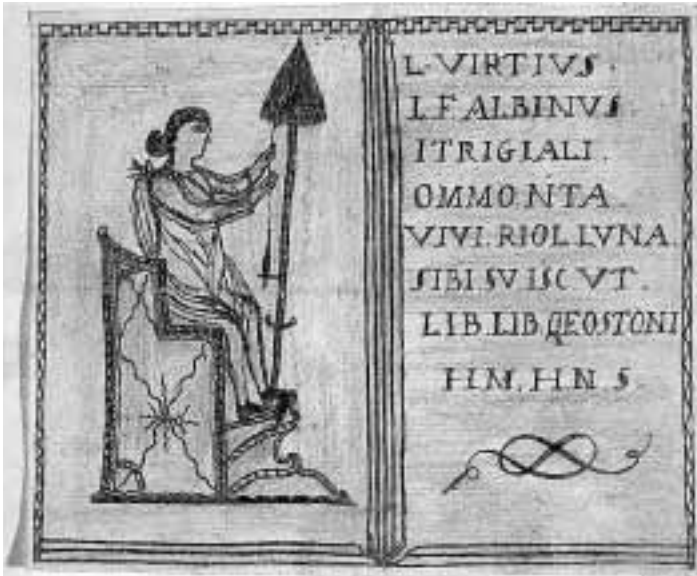 L·VIRTIVS·
L·F·ALBINVS·
ITRIGIALI·
OMMO·NTA
VIVI·RIOLLVNA
SIBI SVISCVT·
LIB·LIB·QEOSTONI
H·M·H·N·S·